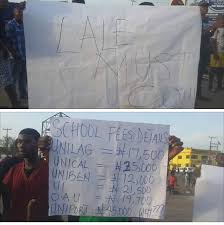 LALE
MUST
GO!
SCHOOL FEES DETAILS
UNILAG = ₦17,500
UNICAL = ₦25,000
UNIBEN = ₦12,000
UI = ₦21,500
O.A.U = ₦19,700
UNIPORT ₦45,000 WHY???